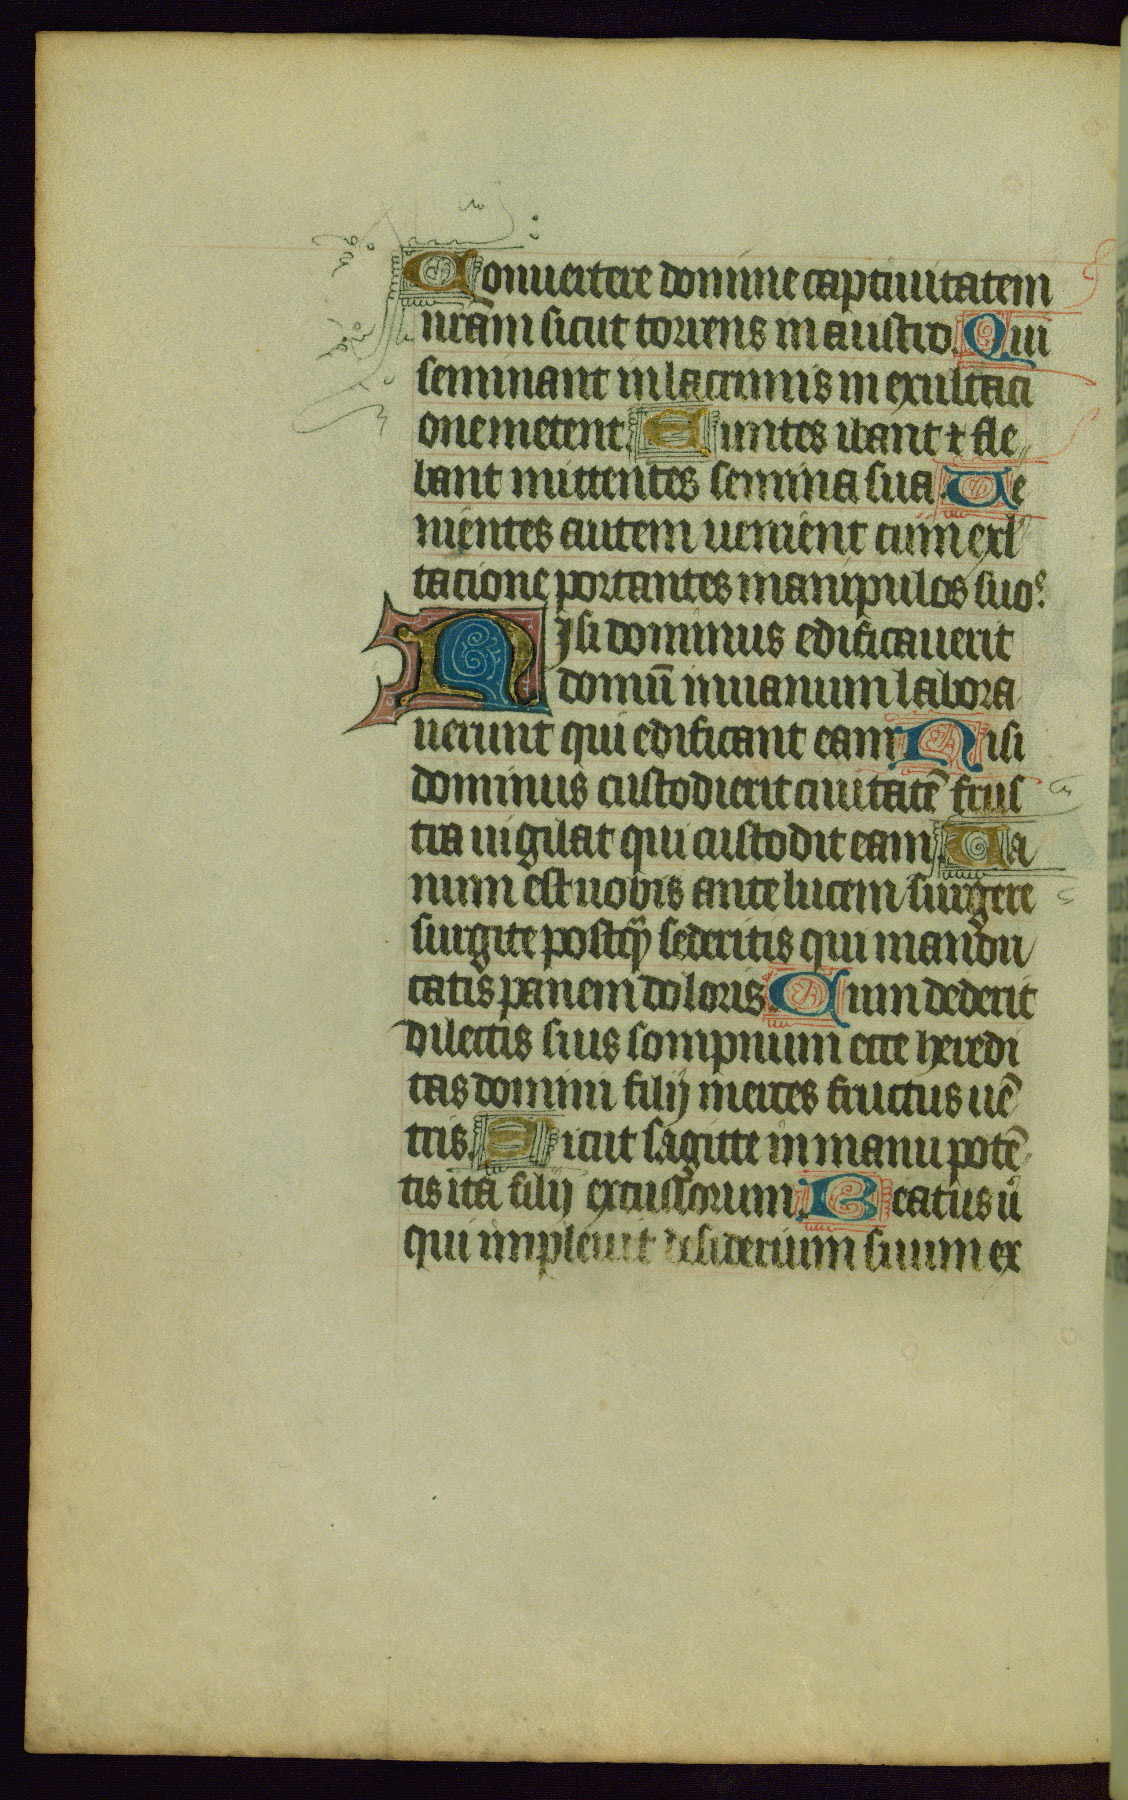 Conuertere domine captiuitatem
nr̃am sicut torrens in austro. Qui
seminant in lacrimis in exultaci
one metent. Euntes ibant ⁊ fle
bant mittentes semina sua. Ue
nientes autem uenient cum exl
tacione portantes manipulos suos.
Nisi dominus edificauerit
domū in uanum labora
uerunt qui edificant eam. Nisi
dominus custodierit ciuitatē frus
tra uigilat qui custodit eam. Ua
num est uobis ante lucem surgere
surgite postq̃ sederitis qui mandu
catis panem doloris. Cum dederit
dilectis suis sompnum ecce heredi
tas domini filij merces fructus uē
tris. Sicut sagitte in manu potē
tis ita filij excussorum. Beatus ũ
qui impleuit desiderium suum ex